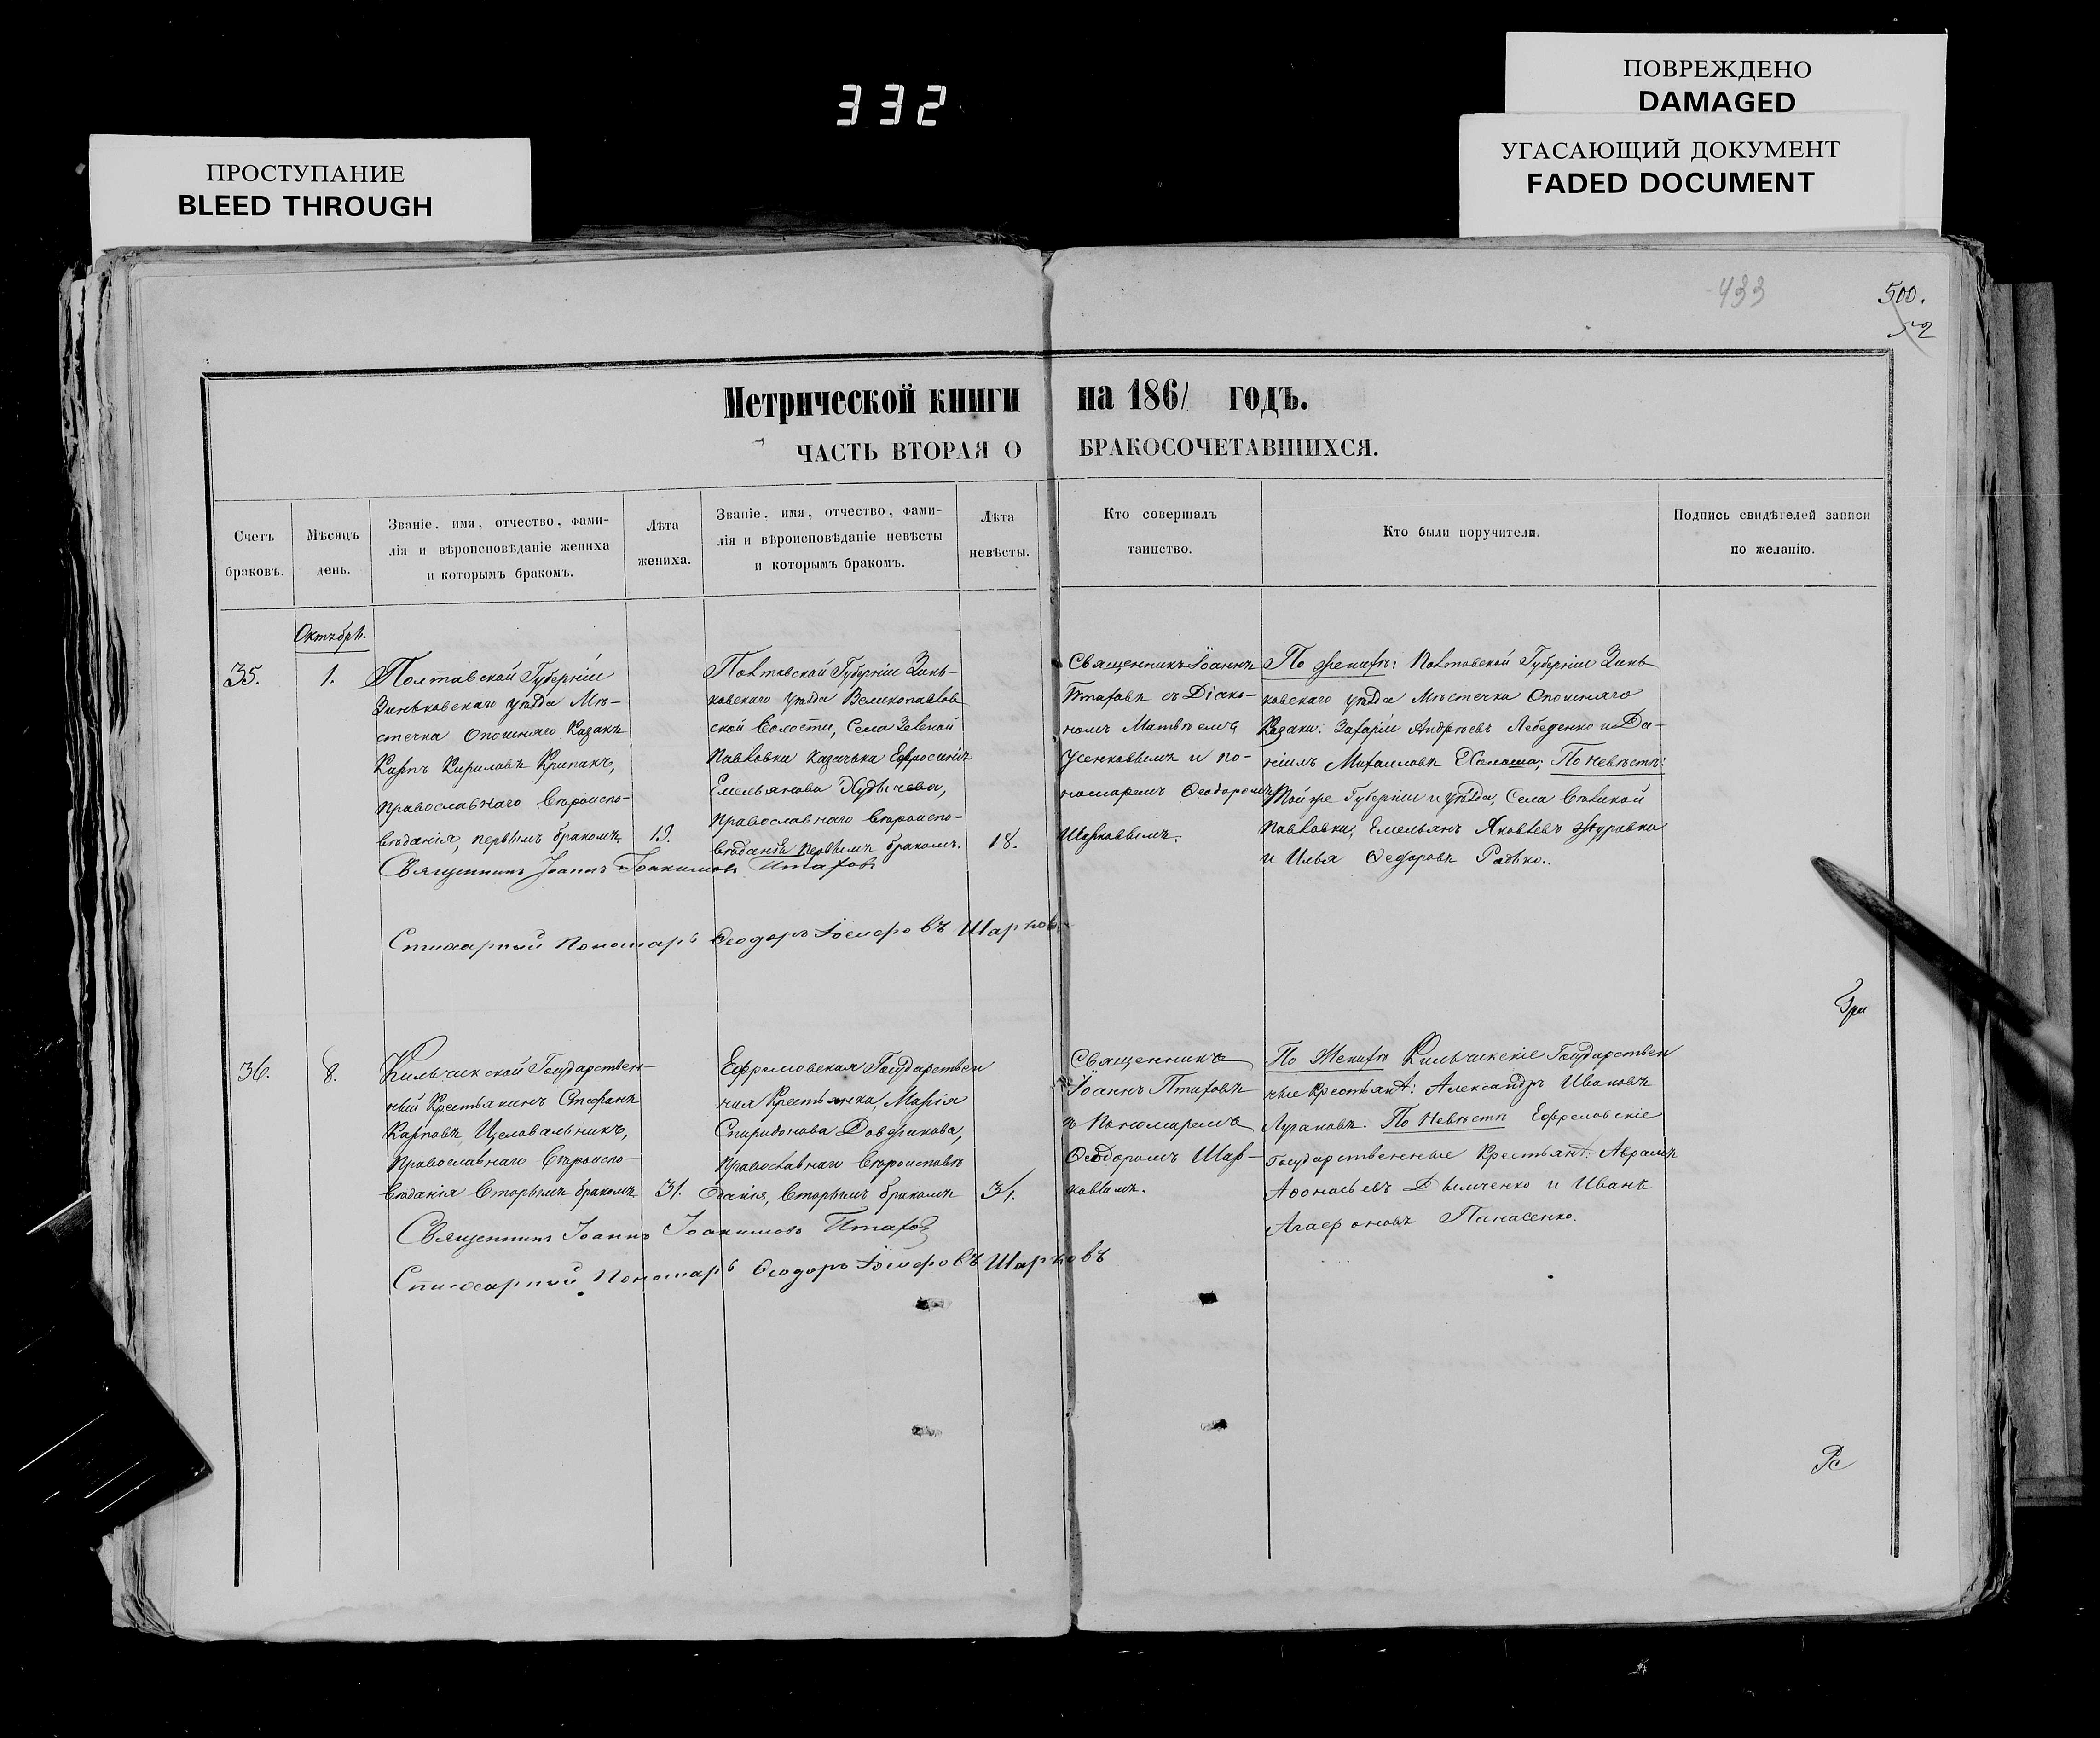 332
ПОВРЕЖДЕНО
DAMAGED
УГАСАЮЩИЙ ДОКУМЕНТ
FADED DOCUMENT
ПРОСТУПАНИЕ
BLEED THROUGH
433
500.
52
Метрической книги на 1861 годъ.
ЧАСТЬ ВТОРАЯ О БРАКОСОЧЕТАВШИХСЯ.
Счетъ
браковъ.
Мѣсяцъ
день.
Званіе, имя, отчество, фами-
лія и вѣроисповѣданіе жениха
и которымъ бракомъ.
Лѣта
жениха.
Званіе, имя, отчество, фами-
лія и вѣроисповѣданіе невѣсты
и которымъ бракомъ.
Лѣта
невѣсты.
Кто совершалъ
таинство.
Кто были поручители.
Подпись свидѣтелей записи
по желанію.
Октябрь.
35.
1.
Полтавской Губерніи
Зиньковскаго уѣзда Мѣ-
стечка Опошняго Казакъ
Карпъ Кириловъ Крипакъ,
православнаго вѣроиспо-
вѣданія, первымъ бракомъ.
19.
Полтавской Губерніи Зинь-
ковскаго уѣзда Великопавлов
ской Волости, Села
Павловки казачька Ефросинія
Емельянова
православнаго вѣроиспо-
вѣданія первымъ бракомъ.
18.
Священникъ Іоаннъ
Птаховъ съ Діако-
номъ Матвѣемъ
Усенковымъ и по-
номаремъ Ѳеодоромъ
Шарковымъ.
По женихѣ: Полтавской Губерніи Зинь
ковскаго уѣзда Мѣстечка Опошняго
Казаки: Захарій Андреевъ Лебеденко и Да-
ніилъ Михаиловъ Халоша; По невѣстѣ:
Той же Губерніи и уѣзда, Села Великой
Павловки, Емельянъ Яковлевъ Журавка
и Илья Ѳедоровъ Радько.
Священникъ Іоаннъ Іоакимовъ Птаховъ
Стихарный Пономарь Ѳеодоръ Іосифовъ Шарковъ
Гри
36.
8.
Кильчикской Государствен-
ный Крестьянинъ Стефанъ
Карповъ Целовальникъ,
православнаго вѣроиспо-
вѣданія вторымъ бракомъ
31.
Ефремовская Государствен
ная Крестьянка, Марія
Спиридонова
православнаго вѣроисповѣ
данія, вторымъ бракомъ
31.
Священникъ
Іоаннъ Птаховъ
съ Пономаремъ
Ѳеодоромъ Шар-
ковымъ.
По Женихѣ Кильчикскіе Государствен
ные Крестьяне: Александръ Ивановъ
Лугановъ. По Невѣстѣ Ефремовскіе
Государственные Крестьяне: Аврамъ
Аѳонасьевъ Дымченко и Иванъ
Агафоновъ Панасенко.
Священникъ Іоаннъ Іоакимовъ Птаховъ
Стихарный Пономарь Ѳеодоръ Іосифовъ Шарковъ
Рс